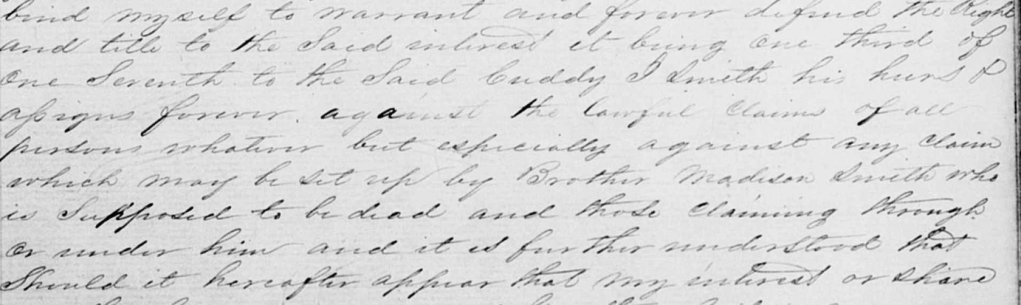 bind myself to warrant and forever defend the Right
and title to the Said interest it being One third of
One Seventh to the Said Cuddy I Smith his heirs &
assigns forever. against the lawful Claims of all
persons whatever but especially against any Claim
which may be set up by Brother Madison Smith who
is Supposed to be dead and those Claiming through
or under him and it is further understood that
Should it hereafter appear that my interest or share